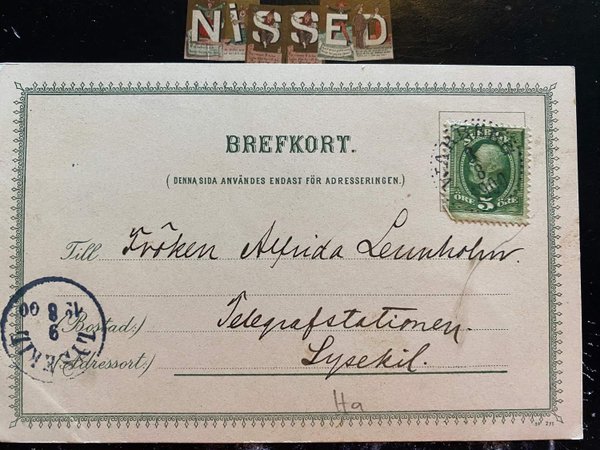 NiSSED
BREFKORT.
(DENNA SIDA ANVÄNDES ENDAST FÖR ADRESSERINGEN.)
SVERIGE
ÖRE 5 ÖRE
Till Fröken Alfrida Leunholm.
(Bostad:) Telegrafstationen.
(Adressort:) Lysekil.
LYSEKIL
9 8 00
Ha